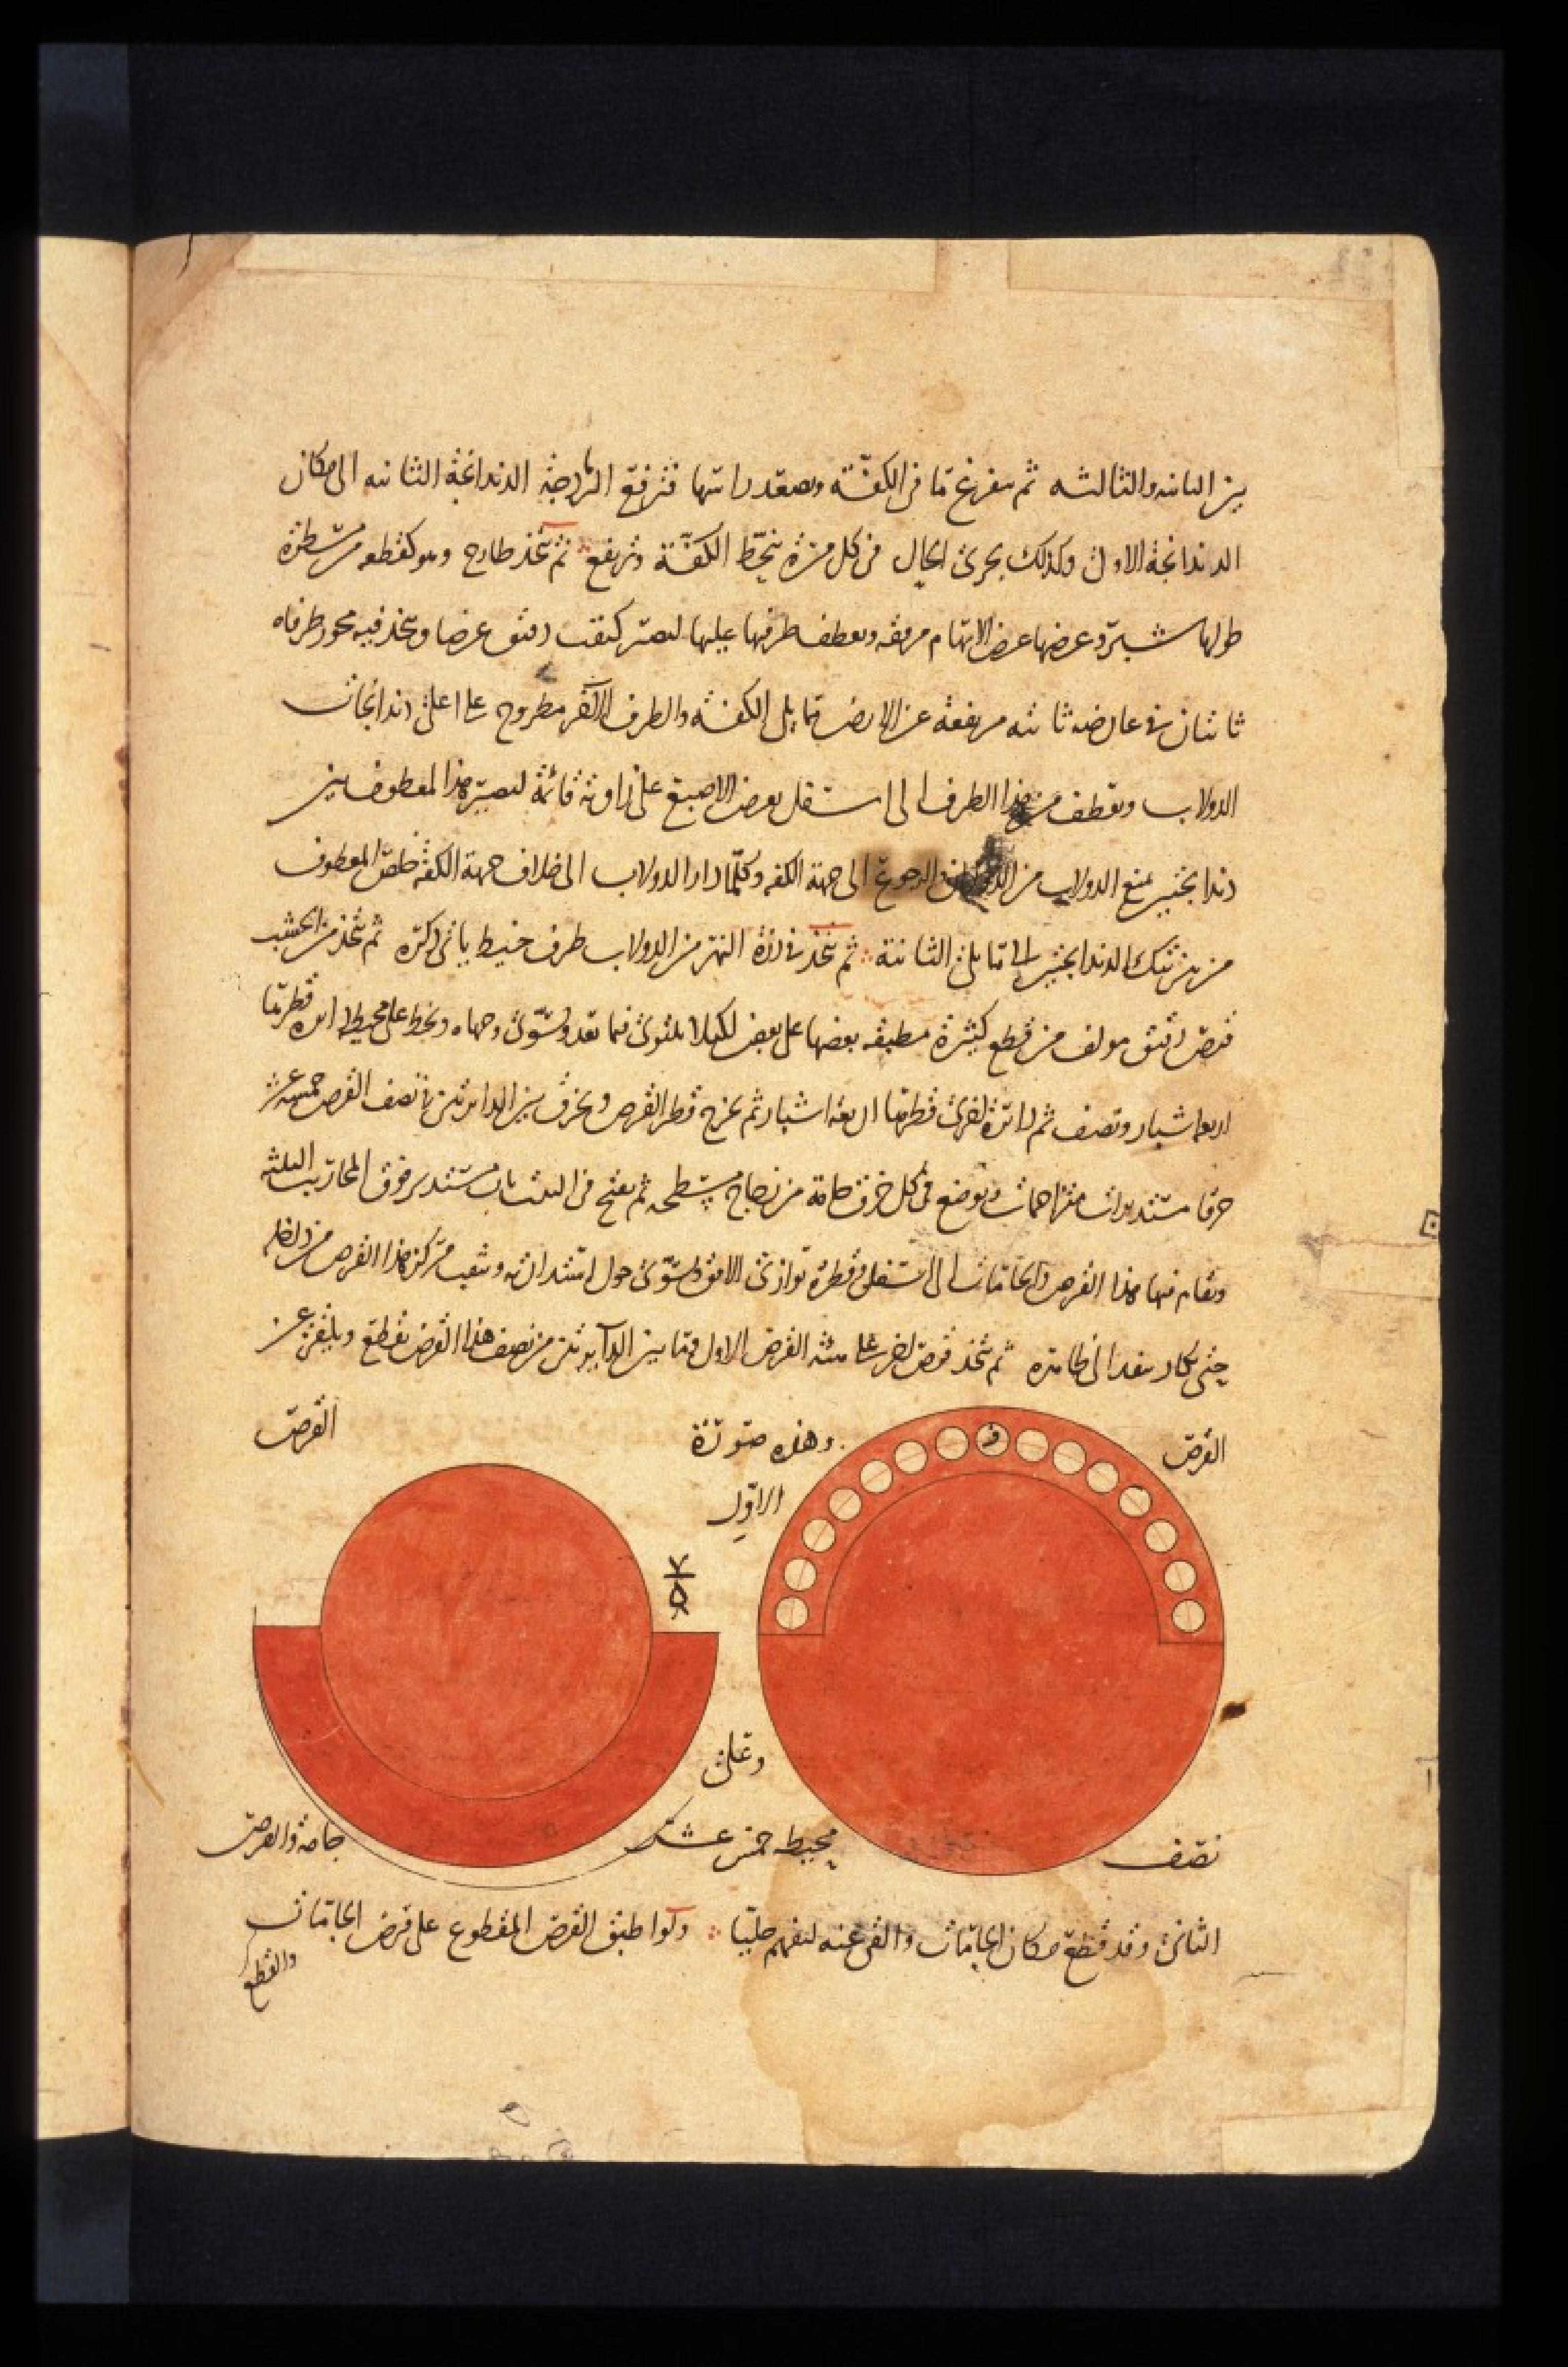 بين الثانية والثالثة ثم يتفرغ ما في الكفة ويصعد راسها فترفع الدندانجة الثانية الى مكان
الدندانجة الاولى وكذلك يجرى الحال في كل مرة ينحط الكفة وترتفع ثم تتخذ طارح وهو كقطعه مسطرة
طولها شبر وعرضها عرض الابهام ويعطف طرفها عليها ليصير دقيق عرضا ويتخذ فيه محور طرفاه
ثابتان في عارضه ثابته مرتفعه عن الارض تقابل الكفة والطرف الاخر مطروح على اعلى دندانجات
الدولاب ويعطف من هذا الطرف الى اسفل بعرض الاصبع على زاوية قائمة ليصير هذا المعطوف بين
دندانجتين يمنع الدولاب من والرجوع الى جهة الكفه وكلما دار الدولاب الى خلاف جهة الكفة خلص المعطوف
من بين تينك الدندانجتين الى ما يلى الثانية ثم يتخذ في الدولاب طرف خيط ياتى ذكره ثم تتخذ من الخشب
قرص دقيق مولف من قطع كثيرة مطبقه بعضها على بعض لكيلا يلتوى فيما بعد ويسوى وجهاه ويخط على محيطه دايره قطرها
اربعة اشبار ونصف ثم دايرة اخرى قطرها اربعة اشبار ثم يخرج قطر القرص ويخرق بين الدايرتين في نصف القرص خمسة عشر
خرقا مستديرات ويوضع في كل خرق جامة من زجاج مسطحه ثم يفتح في البيت باب مستدير فوق المحاريب الثلثه
ويقام فيها هذا القرص والجامات الى اسفل وقطره توازى الافق ويسوى حول استدارته ويثقب مركز هذا القرص من داخله
حتى يكاد ينفد الى ظاهره ثم تتخذ قرص اخر على مثله القرص الاول وما بين الدايرتين من نصف هذا القرص يقطع ويلقى عنه
وهذه صورة القرص
الاول
القرص
وعلى
نصف محيطه خمس عشرة جامة والقرص
الثانى وقد قطع مكان الجامات والقى عنه ليفهم جليا ولو اطبق القرص المقطوع على قرص الجامات
والقطع